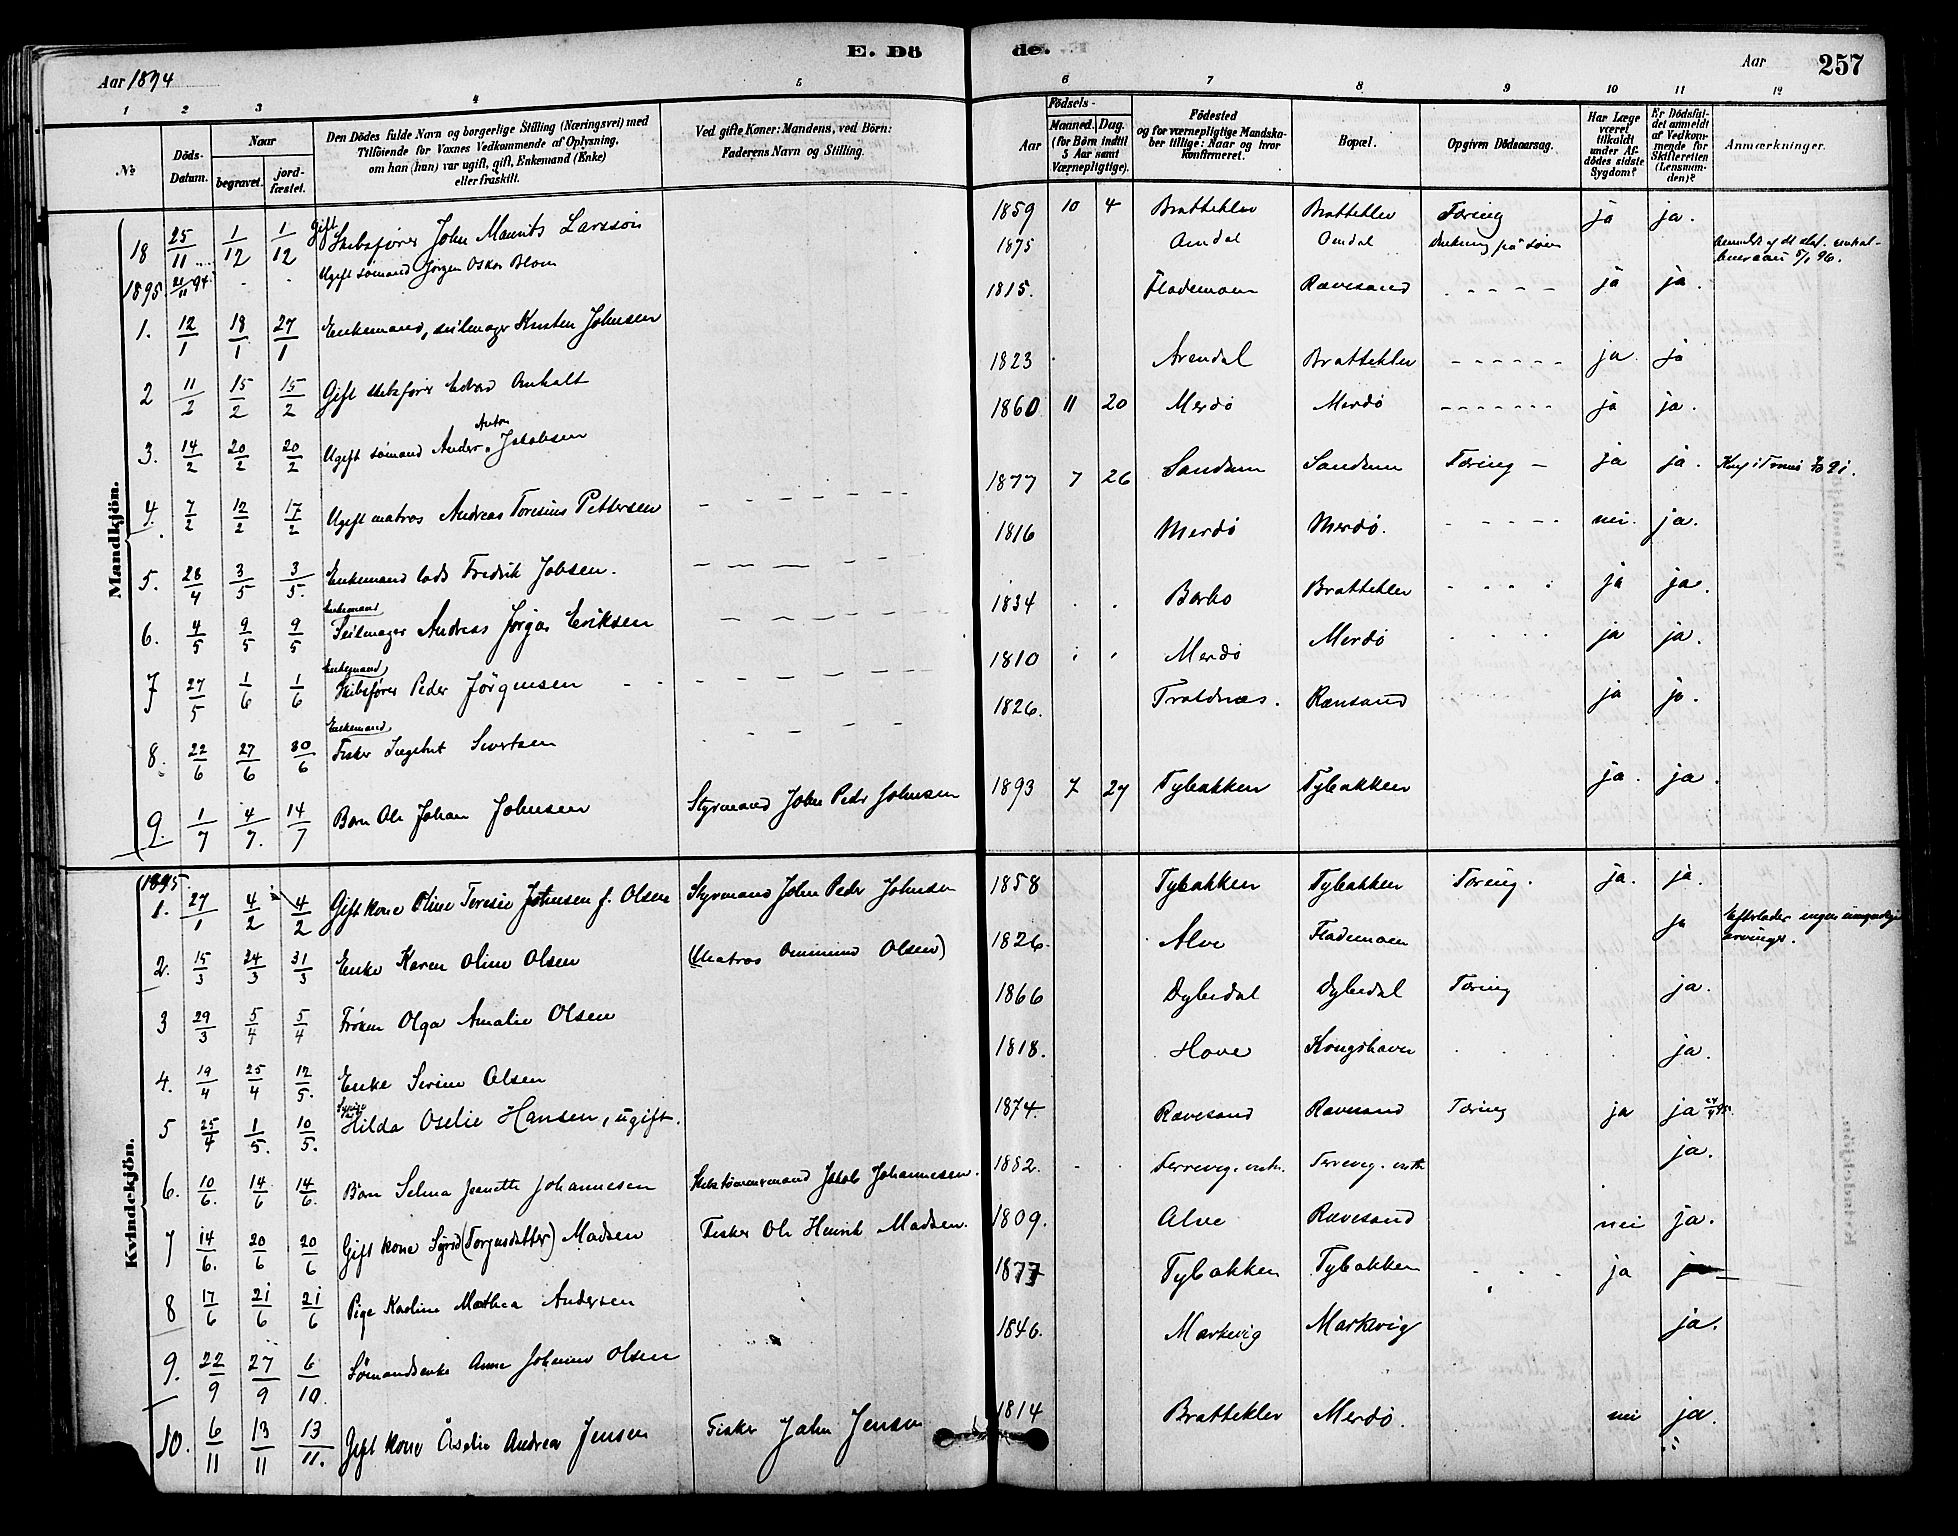 E. Dö de.
Aar 1894 Aar 257
1 2 3 4 5 6 7 8 9 10 11 12
№ Döds-Datum. Naar begravet. jord-fæstet. Den Dödes fulde Navn og borgerlige Stilling (Næringsvei) med Tilföiende for Voxnes Vedkommende af Oplysning, om han (hun) var ugift, gift, Enkemand (Enke) eller fraskilt. Ved gifte Koner: Mandens, ved Börn: Faderens Navn og Stilling. Aar Födsels- Maaned. Dag. (for Börn indtil 5 Aar samt Værnepligtige). Födested og for værnepligtige Mandska-ber tillige: Naar og hvor konfirmeret. Bopæl. Opgiven Dödsaarsag. Har Læge været tilkaldt under Af-dödes sidste Sygdom? Er Dödsfal-det anmeldt af Vedkom-mende for Skifteretten (Lensman-den)? Anmærkninger.
Mandkjön.
18 25/11 1/12 1/12 Gift Skibsfører John Maurits Larssøn 1859 10 4 Brattekler Brattekler Tæring ja ja.
1895 21/11 94 Ugift sømand Jørgen Oskar Blom 1875 Omdal Omdal på søen
1. 12/1 18/1 27/1 Enkemand, seilmager Knuten Johnsen 1815. Flademoen Rævesand - - - - - ja ja.
2 11/2 15/2 15/2 Gift skibsfører Edvard Anholt 1823 Arendal Brattekler - - - - - - ja ja
3. 14/2 20/2 20/2 Ugift sømand Anders Anton Jakobsen 1860 11 20 Merdö Merdö - - - - - - ja ja.
4. 7/2 12/2 17/2 Ugift matros Andreas Toresius Pettersen 1877 7 26 Sandum Sandum Tæring - ja ja.
5. 28/4 3/5 3/5. Enkemand lods Fredrik Jobsen. 1816 Merdö Merdö. - - - - - nei. ja.
6. 4/5 9/5 9/5 Enkemand Seilmager Andreas Jørgas Eriksen 1834 Barbo Brattekler ja ja.
7 27/5 1/6 1/6 Enkemand Skibsfører Peder Jörgensen 1810 Merdö Merdö ja ja.
8. 22/6 27/6 30/6 Enkemand Fisker Ingebret Sivertsen 1826. Traldnæs. Rævesand ja ja.
9. 1/7 4/7. 14/7 Barn Ole Johan Johnsen Styrmand John Peder Johnsen 1893 7 27 Tybakken Tybakken ja. ja.
Kvindekjön.
1895.
1. 27/1 4/2 4/2 Gift kone Oline Teresie Johnsen f. Olsen Styrmand John Peder Johnsen 1858 Tybakken Tybakken Tæring. ja. ja.
2. 15/3 24/3 31/3 Enke Karen Oline Olsen (Matros Ommund Olsen) 1826. Alve Flademoen ja Efterlader ingen umyndige arvinger.
3 29/3 5/4 5/4 Frøken Olga Amalie Olsen 1866 Dybedal Dybedal Tæring ja.
4. 19/4 25/4 12/5. Enke Serine Olsen 1818. Hove Kongshavn ja.
5 25/4 1/5. 10/5. Hilda Oselie Hansen, ugift. 1874. Rævesand Rævesand Tæring ja ja
6. 10/6. 14/6 14/6. Barn Selma Jeanette Johannesen Skibstømmermand Jakob Johannesen. 1882. ja.
7 14/6. 20/6 20/6 Gift kone Syrid (Torgersdatter) Madsen Fisker Ole Henrik Madsen. 1809. Alve Rævesand nei ja.
8 17/6 21/6 21/6 Pige Karline Mathea Andersen 1877 Tybakken Tybakken ja
9. 22/9 27/9 6/10. Sømandsenke Anne Johanne Olsen 1846. Markevig Markevig ja.
10. 6/11 13/11 13/11. Gift kone Åselie Andrea Jensen Fisker John Jensen 1814 Brattekler Merdö. nei ja.